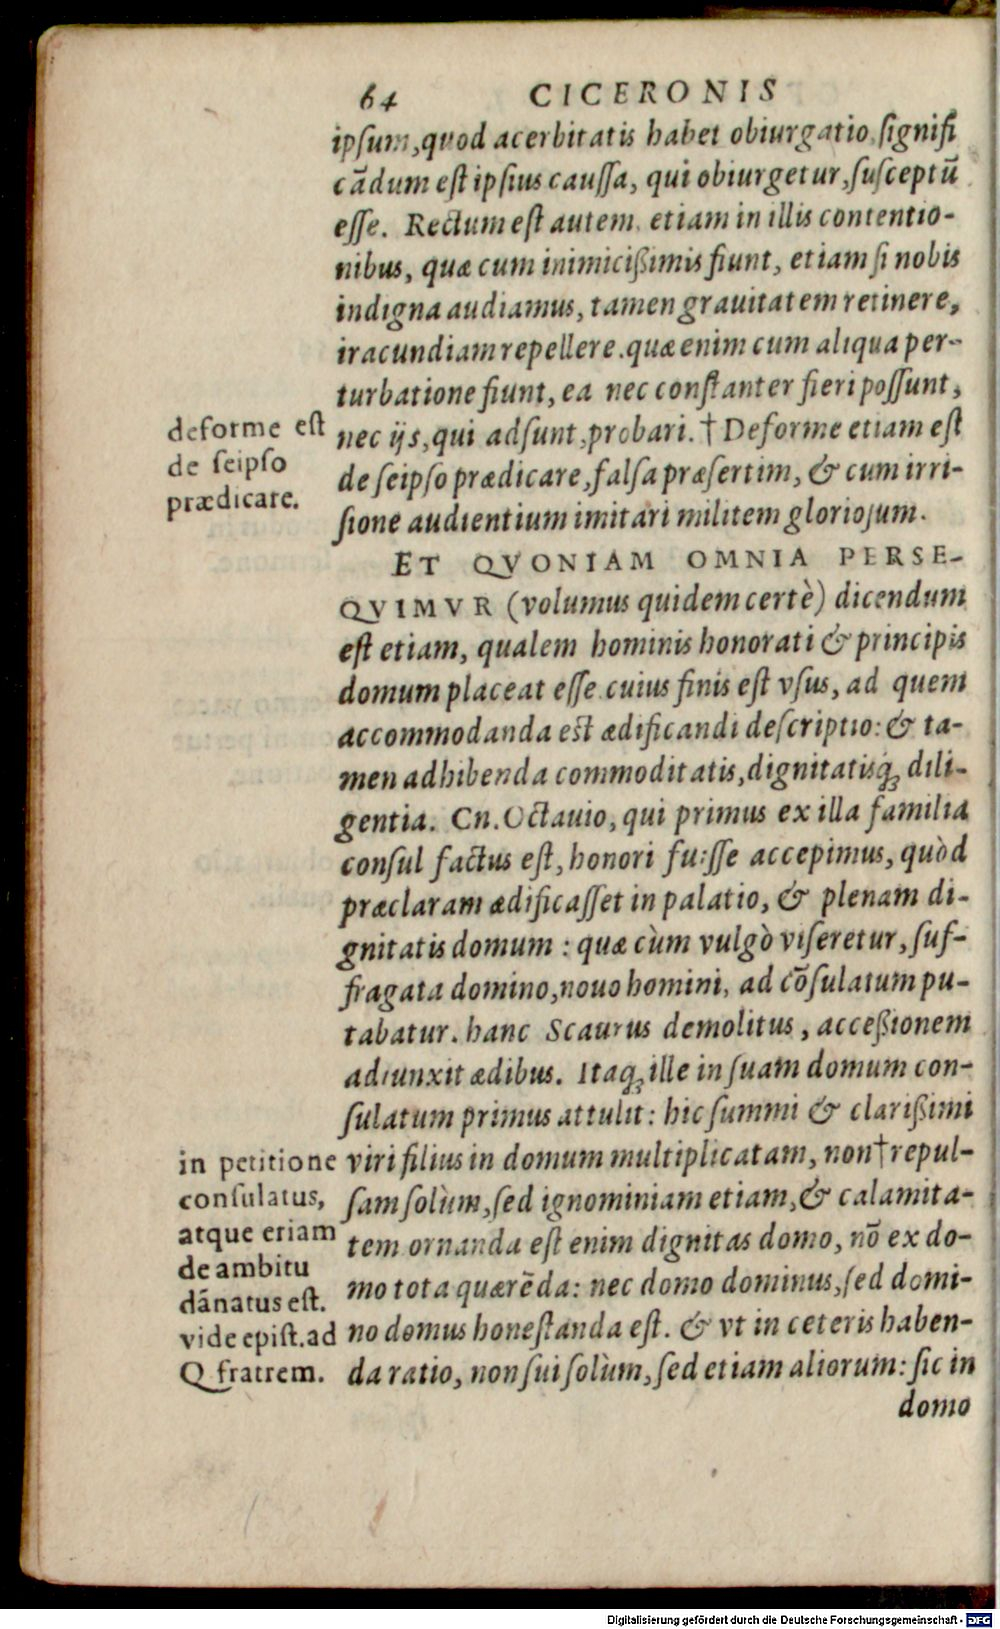 64 CICERONIS
ipsum, quod acerbitatis habet obiurgatio, signifi
cādum est ipsius caussa, qui obiurgetur, susceptū
esse. Rectum est autem, etiam in illis contentio-
nibus, quæ cum inimicißimis fiunt, etiam si nobis
indigna audiamus, tamen grauitatem retinere,
iracundiam repellere. quæ enim cum aliqua per-
turbatione fiunt, ea nec constanter fieri possunt,
nec ijs, qui adsunt, probari. † Deforme etiam est
de seipso prædicare, falsa præsertim, & cum irri-
sione audientium imitari militem gloriosum.
deforme est
de seipso
prædicare.
ET QVONIAM OMNIA PERSE-
QVIMVR (volumus quidem certè) dicendum
est etiam, qualem hominis honorati & principis
domum placeat esse. cuius finis est vsus, ad quem
accommodanda est ædificandi descriptio: & ta-
men adhibenda commoditatis, dignitatisq́ꝫ dili-
gentia. Cn. Octauio, qui primus ex illa familia
consul factus est, honori fuisse accepimus, quòd
præclaram ædificasset in palatio, & plenam di-
gnitatis domum: quæ cùm vulgò viseretur, suf-
fragata domino, nouo homini, ad cōsulatum pu-
tabatur. hanc Scaurus demolitus, acceßionem
adiunxit ædibus. Itaqꝫ ille in suam domum con-
sulatum primus attulit: hic summi & clarißimi
viri filius in domum multiplicatam, non † repul-
sam solùm, sed ignominiam etiam, & calamita-
tem. ornanda est enim dignitas domo, nō ex do-
mo tota quærēda: nec domo dominus, sed domi-
no domus honestanda est. & vt in ceteris haben-
da ratio, non sui solùm, sed etiam aliorum: sic in
in petitione
consulatus,
atque etiam
de ambitu
dānatus est.
vide epist. ad
Q fratrem.
domo
Digitalisierung gefördert durch die Deutsche Forschungsgemeinschaft - DFG